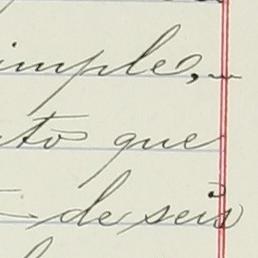 imple,
to que
de seis